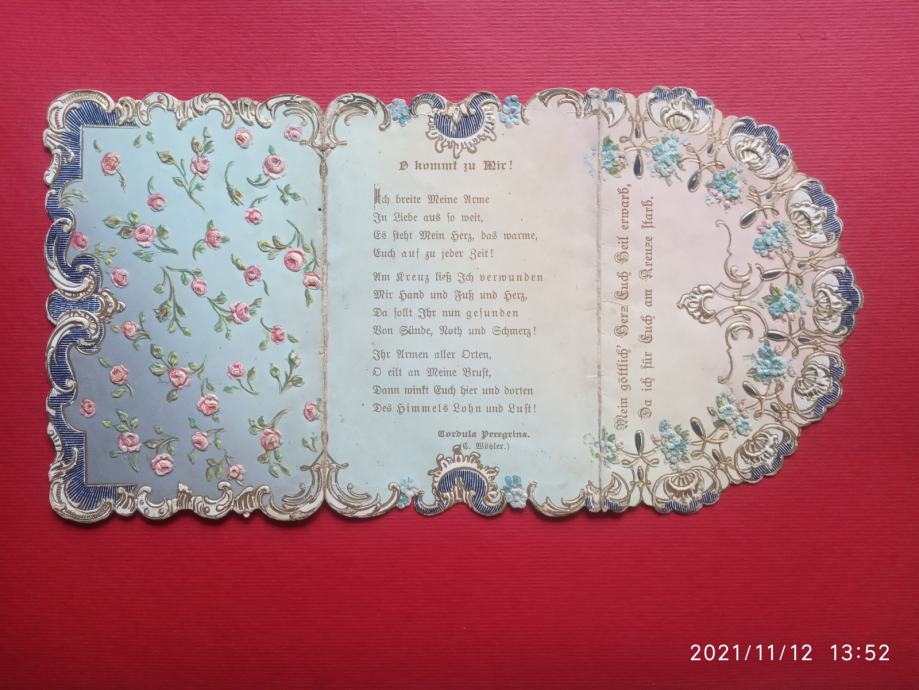 O kommt zu Mir!
Ich breite Meine Arme
In Liebe aus so weit,
Es steht Mein Herz, das warme,
Euch auf zu jeder Zeit!
Am Kreuz ließ Ich verwunden
Mir Hand und Fuß und Herz,
Da sollt Ihr nun gesunden
Von Sünde, Noth und Schmerz!
Ihr Armen aller Orten,
O eilt an Meine Brust,
Dann winkt Euch hier und dorten
Des Himmels Lohn und Lust!
Cordula Peregrina.
(C. Wöhler.)
Mein göttlich' Herz Euch Heil erwarb,
Da ich für Euch am Kreuze starb.
2021/11/12 13:52